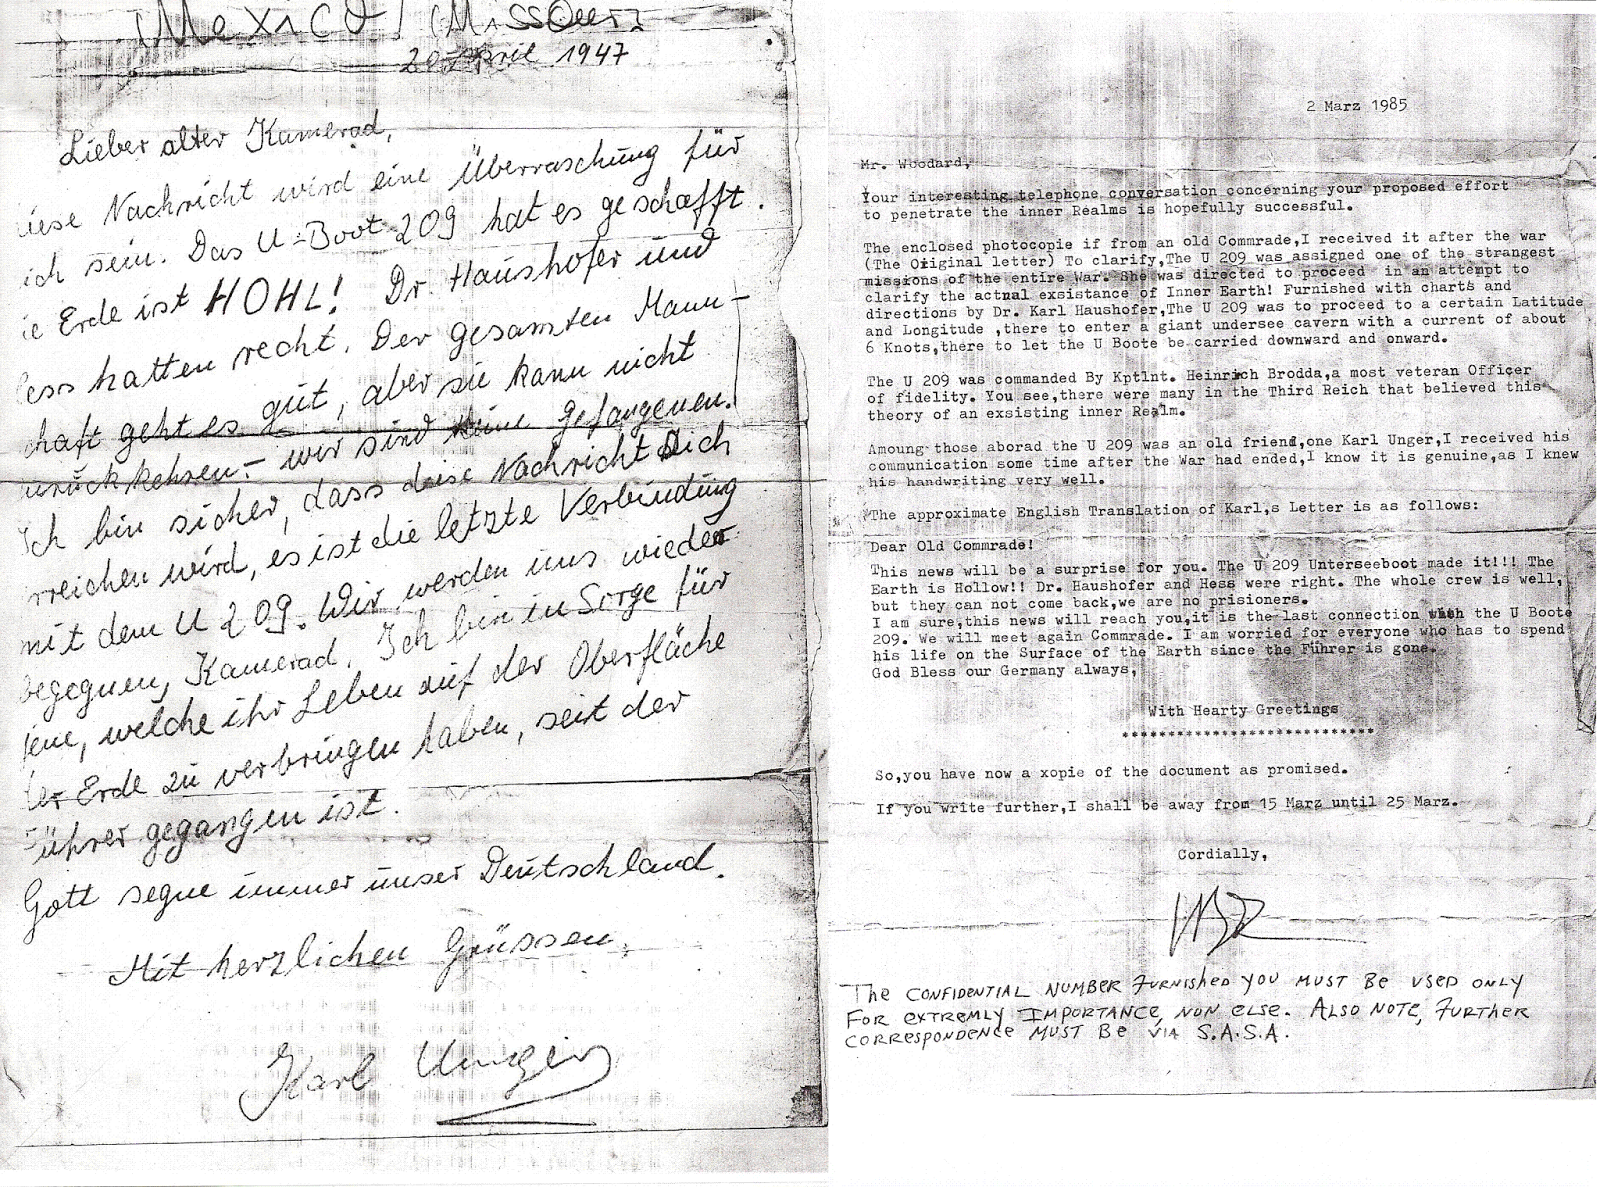 Mexico / Missouri
20 April 1947
Lieber alter Kamerad,
iese Nachricht wird eine Überraschung für
ich sein. Das U-Boot 209 hat es geschafft.
ie Erde ist HOHL! Dr Haushofer und
ess hatten recht. Der gesamten Mann-
chaft geht es gut, aber sie kann nicht
urückkehren. - wir sind keine Gefangenen.
Ich bin sicher, dass diese Nachricht Dich
rreichen wird, es ist die letzte Verbindung
mit dem U 209. Wir werden uns wieder
begegnen, Kamerad. Ich bin in Sorge für
jene, welche ihr Leben auf der Oberfläche
der Erde zu verbringen haben, seit der
Führer gegangen ist.
Gott segne immer unser Deutschland.
Mit herzlichen Grüssen,
Karl Unger
2 Marz 1985
Mr. Woodard,
Your interesting telephone conversation concerning your proposed effort
to penetrate the inner Realms is hopefully successful.
The enclosed photocopie if from an old Commrade,I received it after the war
(The Original letter) To clarify,The U 209 was assigned one of the strangest
missions of the entire War. She was directed to proceed in an attempt to
clarify the actnal exsistance of Inner Earth! Furnished with charts and
directions by Dr. Karl Haushofer,The U 209 was to proceed to a certain Latitude
and Longitude ,there to enter a giant undersee cavern with a current of about
6 Knots,there to let the U Boote be carried downward and onward.
The U 209 was commanded By Kptlnt. Heinrich Brodda,a most veteran Officer
of fidelity. You see,there were many in the Third Reich that believed this
theory of an exsisting inner Realm.
Amoung those aborad the U 209 was an old friend,one Karl Unger,I received his
communication some time after the War had ended,I know it is genuine,as I knew
his handwriting very well.
The approximate English Translation of Karl,s Letter is as follows:
Dear Old Commrade!
This news will be a surprise for you. The U 209 Unterseeboot made it!!! The
Earth is Hollow!! Dr. Haushofer and Hess were right. The whole crew is well,
but they can not come back,we are no prisioners.
I am sure,this news will reach you,it is the last connection with the U Boote
209. We will meet again Commrade. I am worried for everyone who has to spend
his life on the Surface of the Earth since the Führer is gone.
God Bless our Germany always,
With Hearty Greetings
***************************
So,you have now a xopie of the document as promised.
If you write further,I shall be away from 15 Marz until 25 Marz.
Cordially,
THE CONFIDENTIAL NUMBER FURNISHED YOU MUST BE USED ONLY
FOR EXTREMLY IMPORTANCE, NON ELSE. ALSO NOTE, FURTHER
CORRESPONDENCE MUST BE VIA S.A.S.A.